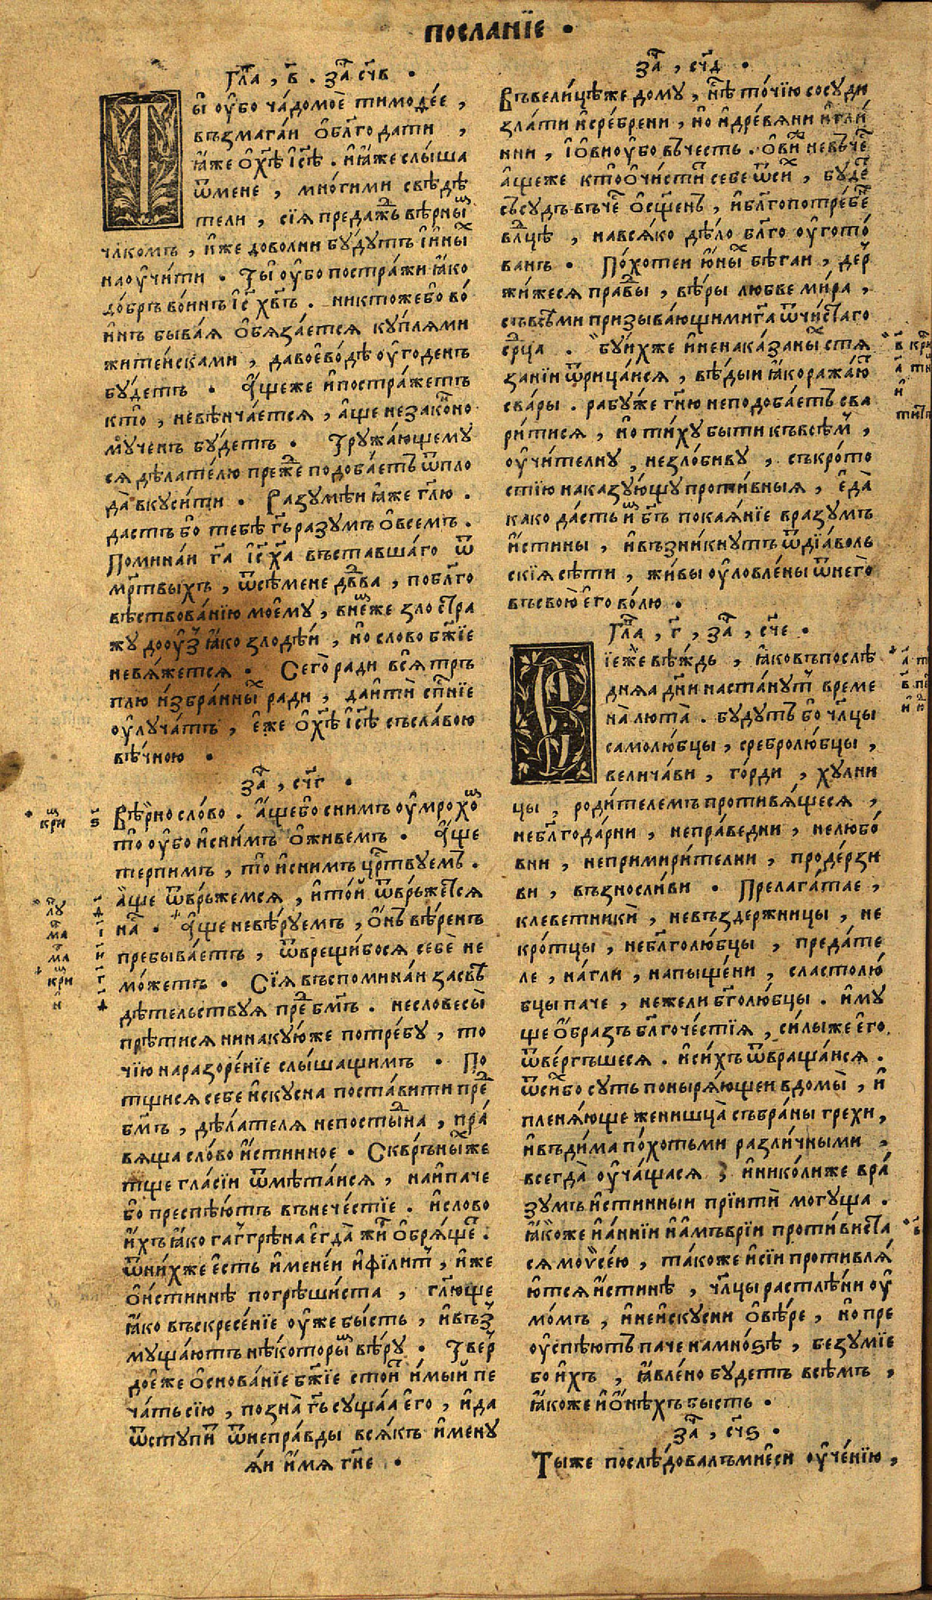 посланїе .
Гла҃ , в҃ . за҃ , сч҃в .
Ты̀ ѹ҆́бо ча́домоѐ тимоѳе́е ,
възмага́и ѡ҆бл҃года́ти ,
ꙗ҆́же ѡ҆хс҃ѣ і҆с҃ѣ . и҆ꙗ҆́же слы́ша
ѿмене , мно́гими свѣдѣ́
тели , сїѧ̀ преда́жⷣь вѣ́рныⷨ
чл҃комъ , и҆́же дово́лни бу́дутъ и҆и҆ны́ⷯ
наѹ҆чи́ти . Ты̀ ѹ҆́бо постра́жи ꙗ҆́ко
до́бръ во́инъ і҆с҃ хв҃ъ . никто́жебо̀ во́
инъ быва́ѧ ѡ҆бѧза́етсѧ ку́плѧми
жите́исками , давоево́дѣ ѹ҆го́денъ
бу́детъ . А҆́щеже и҆постра́жетъ
кто̀ , невѣнча́етсѧ , а҆́ще незако́нно
му́ченъ бу́детъ . Тружа́ющему
сѧ дѣла́телю пре́жⷣе подоба́етъ ѿпло
да̀ вкуси́ти . Разумѣ́и ꙗ҆́же гл҃ю .
да́стъ бо̀ тебѣ̀ гь҃ ра́зумъ ѡ҆все́мъ .
Помина́и га҃ і҆с҃ ха҃ въста́вшаго ѿ
ме́ртвыхъ , ѿсѣ́мене дв҃два , побл҃го
вѣствова́нїю моему̀ , вне́мⷤе зло̀ стра
жу̀ доѹ҆́зъ ꙗ҆́ко злодѣ́и , но̀ сло́во бж҃їе
невѧ́жетсѧ . Сего̀ ра́ди всѧ̀ тръ
плю̀ и҆збра́нныⷯ ра́ди , да и҆ тїѝ сп҃нїе
ѹ҆луча́тъ , е҆́же ѡ҆хс҃ѣ і҆с҃ѣ съсла́вою
вѣ́чною .
за҃ , сч҃г .
Вѣ́рно сло́во . А҆́щебо сни́мъ ѹ҆мро́хоⷨ
то̀ ѹ҆́бо и҆сни́мъ ѡ҆живе́мъ . А҆́ще
терпи́мъ , то̀ и҆сни́мъ цр҃твуемъ .
А҆́ще ѿвръ́жемсѧ , и҆то́и ѿвръ́жетсѧ
на́съ . А҆́ще невѣ́руемъ , ѡ҆́нъ вѣ́ренъ
пребыва́етъ , ѿврещи́босѧ себѐ не
мо́жетъ . Сїѧ̀ въспомина́и засвѣ
дѣ́тельствуѧ преⷣ бг҃мъ . несловесы̀
прѣ́тисѧ нинаку́юже потре́бу , то
чїю наразоре́нїе слы́шащимъ . По
тщи́сѧ себѐ и҆ску́сна поста́вити преⷣ
бг҃мъ , дѣ́лателѧ непосты́дна , пра́
вѧща сло́во и҆́стинное . Скврь́ныⷯже
тще гла́сїи ѿмѣта́исѧ , наипа́че
бо̀ преспѣ́ютъ внече́стїе . и҆сло́во
и҆́хъ ꙗ҆́ко гагре́на е҆гда̀ жи́ръ ѡ҆брѧ́щеⷮ .
ѿни́хже е҆́сть и҆мене́и и҆фили́тъ , и҆́же
ѡ҆и҆́стиннѣ погрѣши́ста , гл҃юще
ꙗ҆́ко въскресе́нїе ѹ҆жѐ бы́сть , и҆въз
муща́ютъ нѣ́которыⷨ вѣ́ру . Тве́р
дое́же ѡ҆снова́нїе бж҃їе стои́тъ и҆мы́и пе
ча́ть сїю̀ , позна̀ гь҃ су́щаѧ е҆го̀ , и҆да
ѿсту́питъ ѿнепра́вды всѧ́къ и҆мену
ѧ́и и҆́мѧ гн҃е .
за҃ , сч҃д .
Въвели́цѣже дому̀ , нⷭ҇ѣ то́чїю сосу́ди
зла́ти и҆сре́брени , но̀ и҆дре́вѧни и҆гли́
нѧни , і҆ѡ҆́виѹ҆́бо въче́сть . ѡ҆́виⷤ невъче́ⷭ
А҆́щеже кто̀ ѡ҆чи́ститъ себѐ ѿси́хъ , бу́деⷮ
съсу́дъ въче́сть ѡ҆сще́нъ , и҆бл҃гопотре́беⷩ
вл҃цѣ , навсѧ́ко дѣ́ло бл҃го ѹ҆гото́
ванъ . По́хотеи ю҆́ныⷯ бѣ́гаи , дер
жи́жесѧ пра́вды , вѣ́ры любвѐ ми́ра ,
съвсѣ́ми призыва́ющимига҃ ѿчи́стаго
се́рца . Бу́ихже и҆ненака́заныⷯ стѧ
за́нїи ѿрица́исѧ , вѣ́дыи ꙗ҆́коража́ю
сва́ры . рабу́же гн҃ю неподоба́етъ сва
ри́тисѧ , но̀ ти́ху бы́ти къвсѣ́мъ ,
ѹ҆чи́телну , незло́биву , съкро́то
стїю наказу́ющу проти́вныѧ , е҆да̀
ка́ко да́сть иⷨ бг҃ъ покаѧ́нїе вра́зумъ
и҆́стины , и҆възни́кнутъ ѿдїа́воль
скїѧ сѣ́ти , жи́вы ѹ҆ловле́ны ѿнего̀
въсвою̀ е҆го̀ во́лю .
Гла҃ , г҃ , за҃ , сч҃е .
Сїе́же вѣ́ждь , ꙗ҆́ковъпослѣ
днѧѧ дн҃и наста́нутъ време
на̀ лю́та . бу́дутъ бо̀ чл҃цы
самолю́бцы , сребролю́бцы ,
велича́ви , го́рди , ху́лни
цы , роди́телемъ противѧ́щесѧ ,
небл҃года́рни , непра́ведни , нелюбо́
вни , непримири́телни , проде́рзи
ви , възносли́ви . Прелага́тае ,
клеветникѝ , невъздержницы , не
кро́тцы , небл҃голю́бцы , преда́те
ле , на́гли , напыще́ни , сластолю́
бцы па́че , не́жели бг҃олю́бцы . и҆му́
ще ѡ҆́бразъ бл҃гоче́стїѧ , си́лыже е҆го̀
ѿве́ргъшесѧ . и҆си́хъ ѿвраща́исѧ .
ѿси́хбо су́ть поныра́ющеи вдомы̀ , и҆
пленѧ́юще женищца̀ събра́ны грехѝ ,
и҆въди́ма по́хотьми разли́чными ,
всегда̀ ѹ҆ча́щасѧ , и҆николи́же вра́
зумъ и҆́стинныи прїитѝ могу́ща .
ꙗ҆́коже и҆а́ннїи и҆а҆мъврїи проти́виста
сѧ мои҆се́ю , та́коже и҆сїи противлѧ́
ютсѧ и҆́стиннѣ , чл҃цы растлѣ́ни ѹ҆
мо́мъ , и҆неи҆ску́сни ѡ҆вѣ́ре , но̀ пре
ѹ҆спѣ́ютъ па́че намно́ѕѣ , безу́мїе
бо и҆́хъ , ꙗ҆вле́но бу́детъ всѣ́мъ ,
ꙗ҆́коже и҆ѡ҆нѣ́хъ бы́сть .
за҃ , сч҃ѕ .
Ты́же послѣ́довалъмиеси ѹ҆че́нїю ,